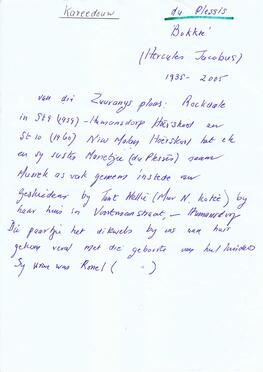 Kareedouw
du Plessis
Bokkie
(Hercules Jacobus)
1935 - 2005
van die Zuuranys plaas: Rockdale
in St 9 (1959) - Humansdorp Hoërskool en
St 10 (1960) Nico Malan Hoërskool het ek
en sy suster Marietjie (du Plessis) saam
Musiek as vak geneem instede van
geskiedenis by Tant Nellie (Mev N. ) by
haar huis in Voortmanstraat, - Humansdorp
Die paartjie het dikwels by ons aan huis
gekom veral met die geboorte van hul kinders
Sy vrou was Ronel ( )